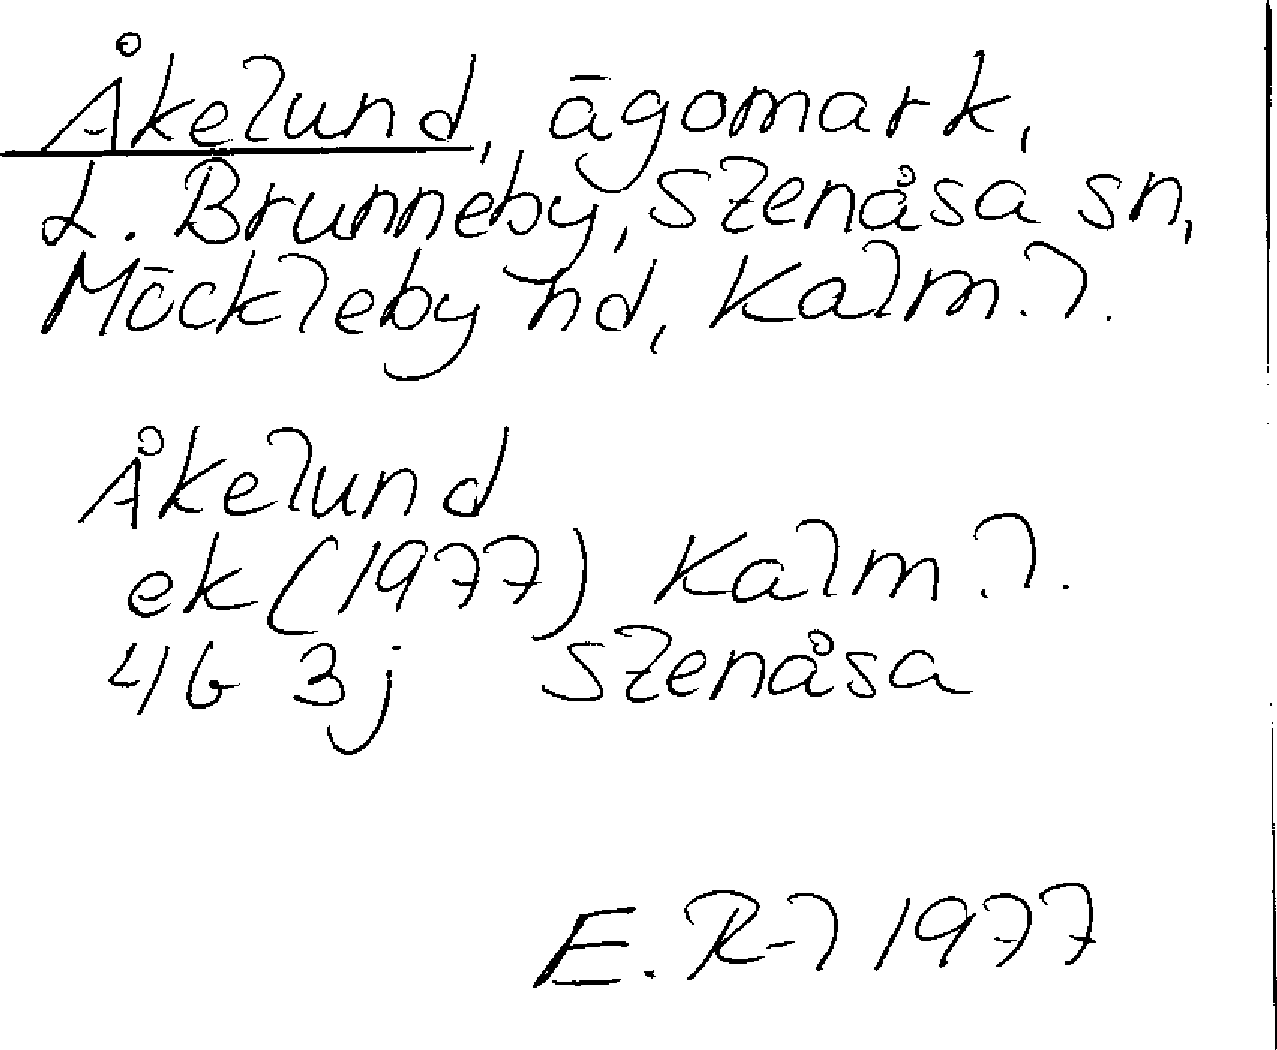 Åkelund, ägomark,
L. Brunneby, Stenåsa sn,
Möckleby hd, Kalm. l.
Åkelund
ek (1977) Kalm. l.
4G 3j Stenåsa
E. R-l 1977